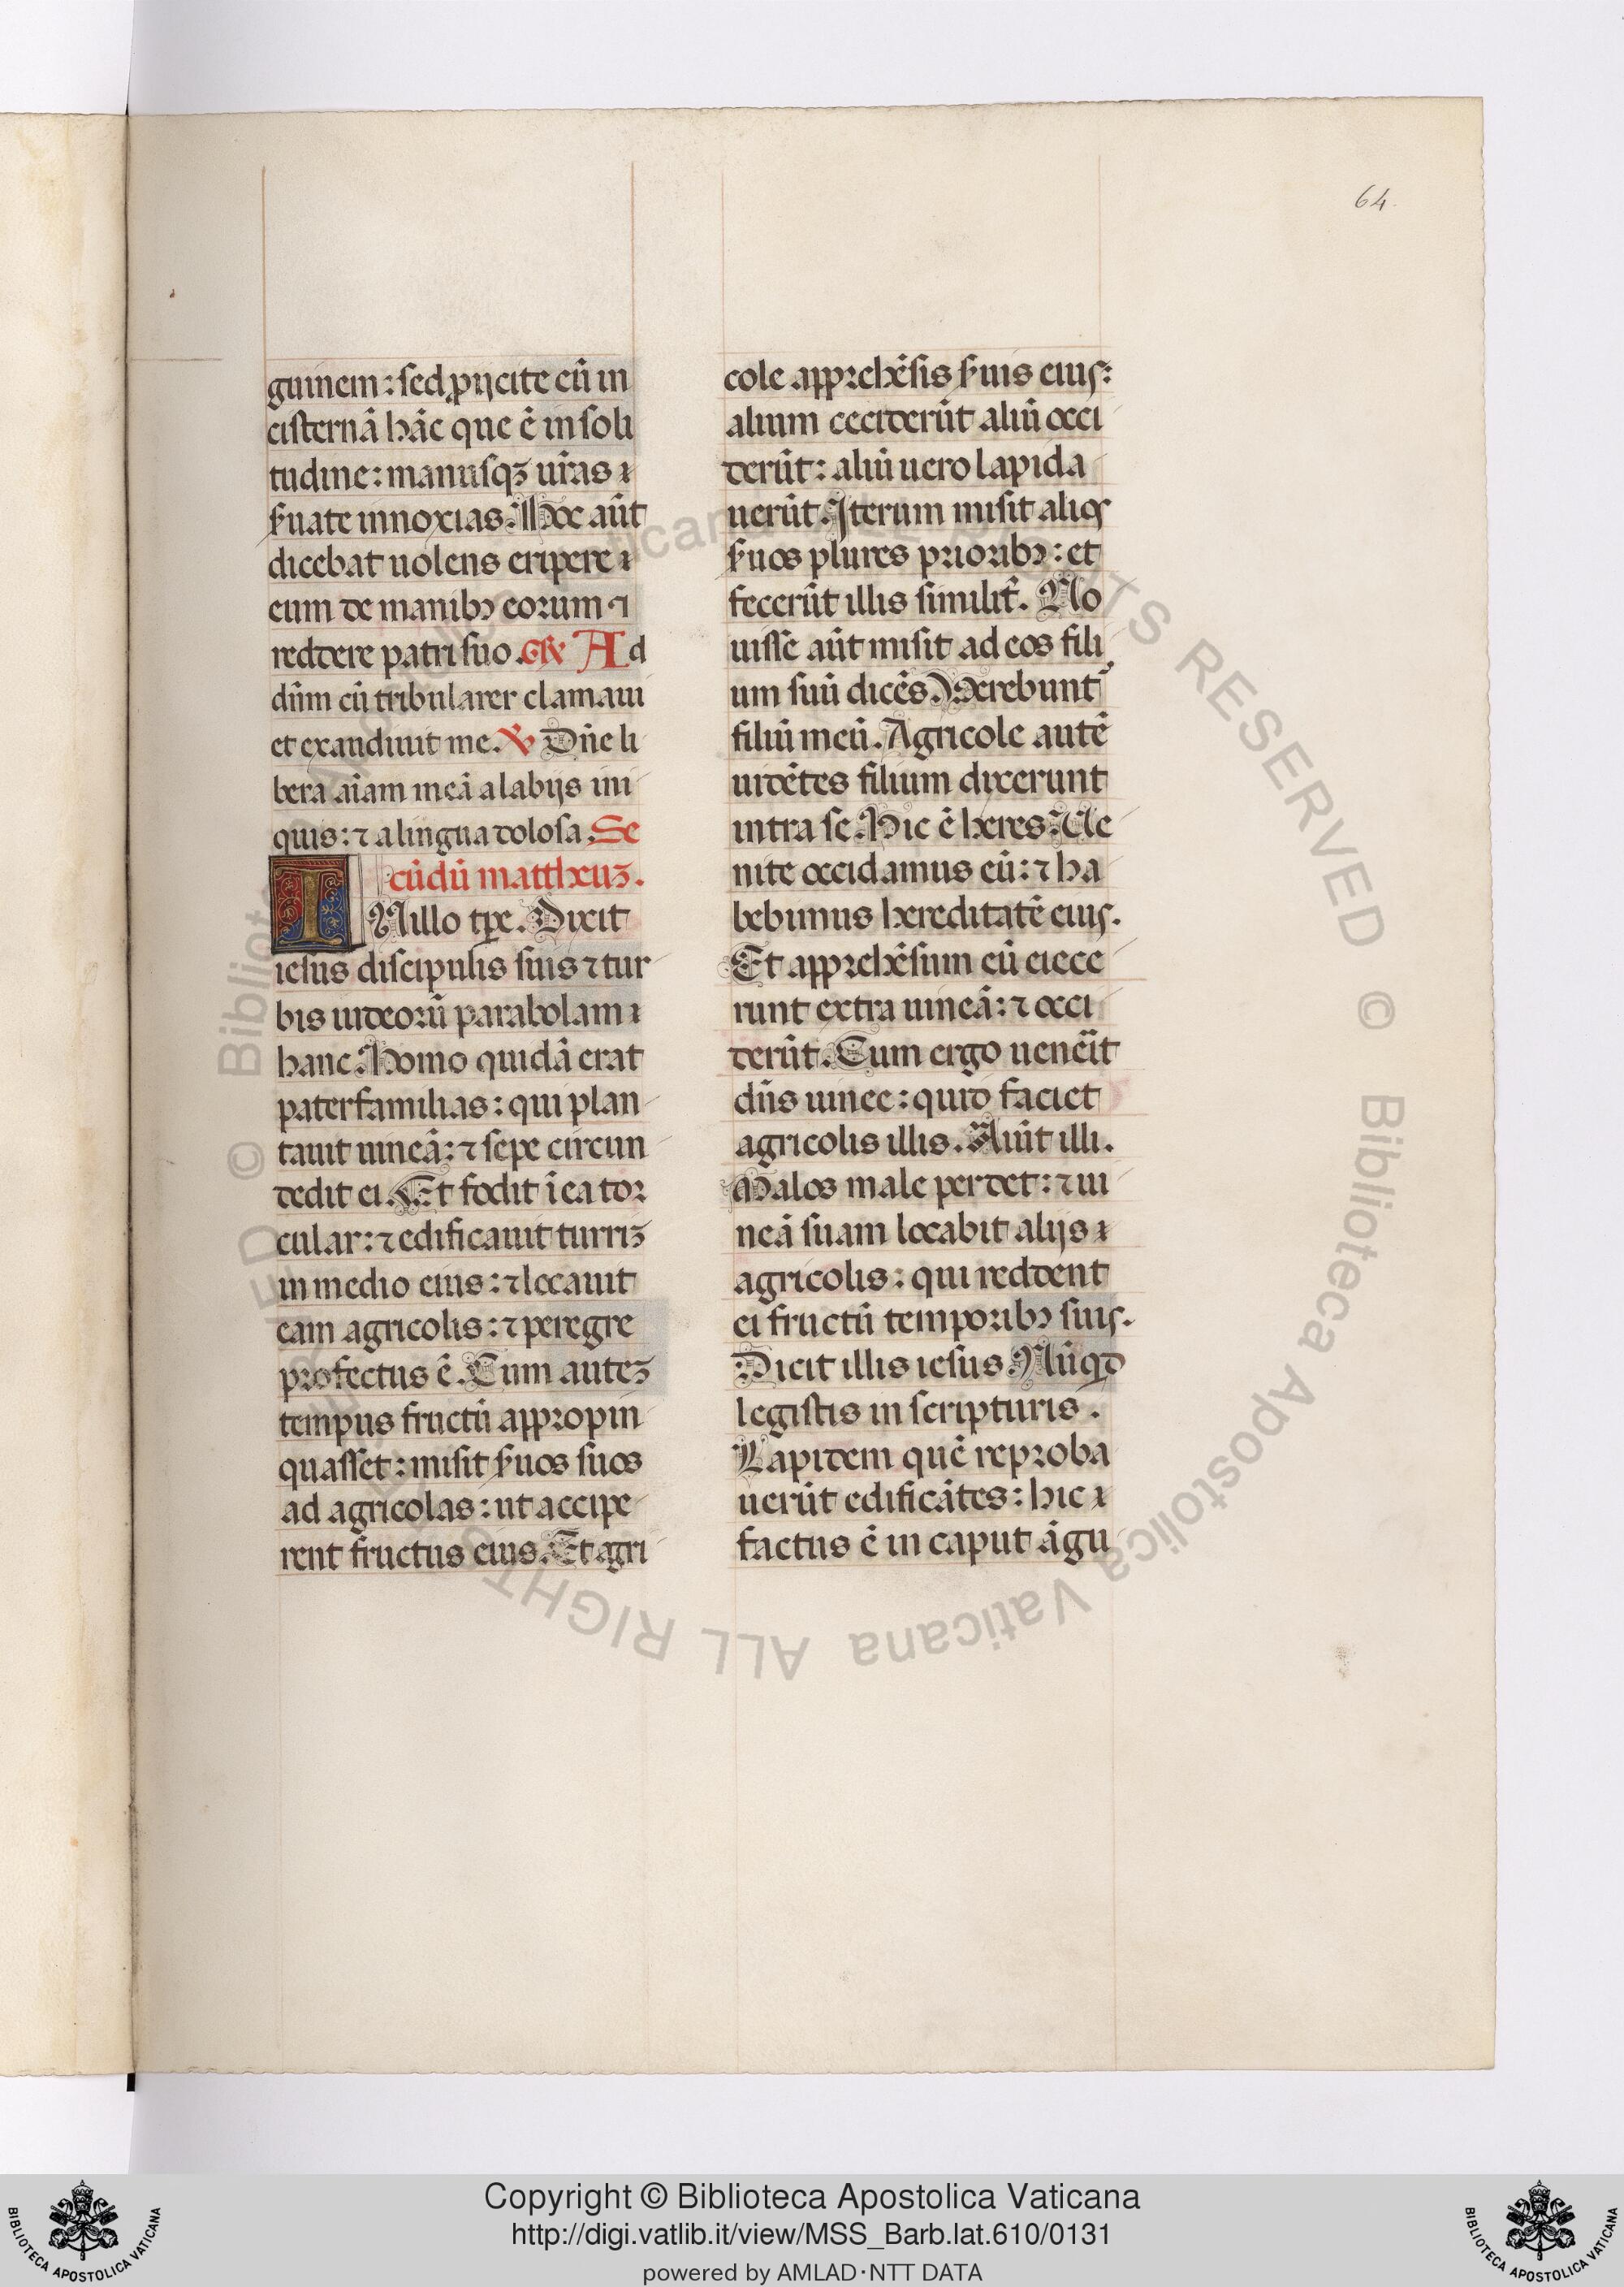 64.
guinem : sed proijcite eū in
cisternā hāc que ē in soli
tudine : manusqꝫ ur̄as
s̄uate innoxias. Hoc aūt
dicebat uolens eripere
eum de manibꝰ eorum ⁊
reddere patri suo. GR̄ Ad
dn̄m cū tribularer clamaui
et exaudiuit me. ℣ Dn̄e li
bera aīam meā a labijs ini
quis : ⁊ a lingua dolosa. Se
cūdū mattheuꝫ.
IN illo tp̄e. Dixit
iesus discipulis suis ⁊ tur
bis iudeorū parabolam
hanc. Homo quidā erat
paterfamilias : qui plan
tauit uineā : ⁊ sepe circun
dedit ei. Et fodit ī ea tor
cular : ⁊ edificauit turriꝫ
in medio eius : ⁊ locauit
eam agricolis : ⁊ peregre
profectus ē. Cum auteꝫ
tempus fructū appropin
quasset : misit s̄uos suos
ad agricolas : ut accipe
rent fructus eius. Et agri
cole apprehēsis s̄uis eius :
alium ceciderūt aliū occi
derūt : aliū uero lapida
uerūt. Iterum misit alios
s̄uos plures prioribꝰ : et
fecerūt illis similit̄. No
uisse aūt misit ad eos fili
um suū dicēs. Verebunt᷑
filiū meū. Agricole autē
uidētes filium dixerunt
intra se. Hic ē heres. Ue
nite occidamus eū : ⁊ ha
bebimus hereditatē eius.
Et apprehēsum eū eiece
runt extra uineā : ⁊ occi
derūt. Cum ergo uenēit
dn̄s uinee : quid faciet
agricolis illis. Aiūt illi.
Malos male perdet : ⁊ ui
neā suam locabit alijs
agricolis : qui reddent
ei fructū temporibꝰ suis.
Dicit illis iesus. Nūqd
legistis in scripturis.
Lapidem quē reproba
uerūt edificātes : hic
factus ē in caput āgu
Copyright © Biblioteca Apostolica Vaticana
http://digi.vatlib.it/view/MSS_Barb.lat.610/0131
powered by AMLAD·NTT DATA
BIBLIOTECA APOSTOLICA VATICANA
BIBLIOTECA APOSTOLICA VATICANA
© Biblioteca Apostolica Vaticana ALL RIGHTS RESERVED
© Biblioteca Apostolica Vaticana ALL RIGHTS RESERVED